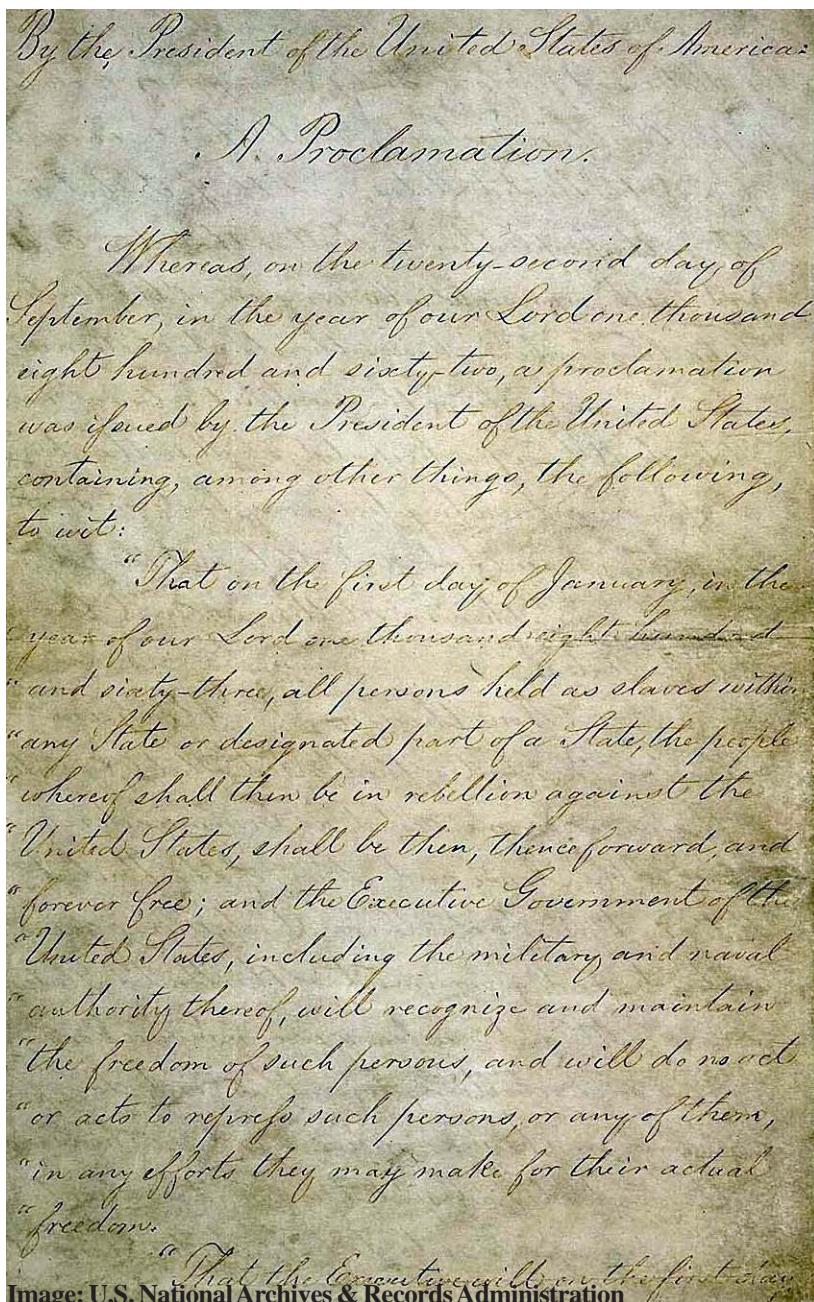 By the President of the United States of America:
A Proclamation.
Whereas, on the twenty-second day of
September, in the year of our Lord one thousand
eight hundred and sixty-two, a proclamation
was issued by the President of the United States,
containing, among other things, the following,
to wit:
"That on the first day of January, in the
year of our Lord one thousand eight hundred
"and sixty-three, all persons held as slaves within
"any State or designated part of a State, the people
"whereof shall then be in rebellion against the
"United States, shall be then, thenceforward, and
"forever free; and the Executive Government of the
"United States, including the military and naval
"authority thereof, will recognize and maintain
"the freedom of such persons, and will do no act
"or acts to repress such persons, or any of them,
"in any efforts they may make for their actual
"freedom.
"That the Executive will, on the first day
Image: U.S. National Archives & Records Administration